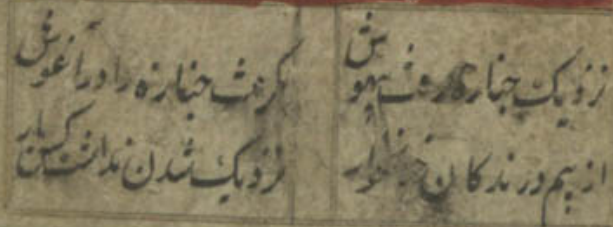 نزدیک جنازه رفت بیهوش
کرفت جنازه را در آغوش
از بیم درندکان خونخوار
نزدیک شدن نداشت کس یار